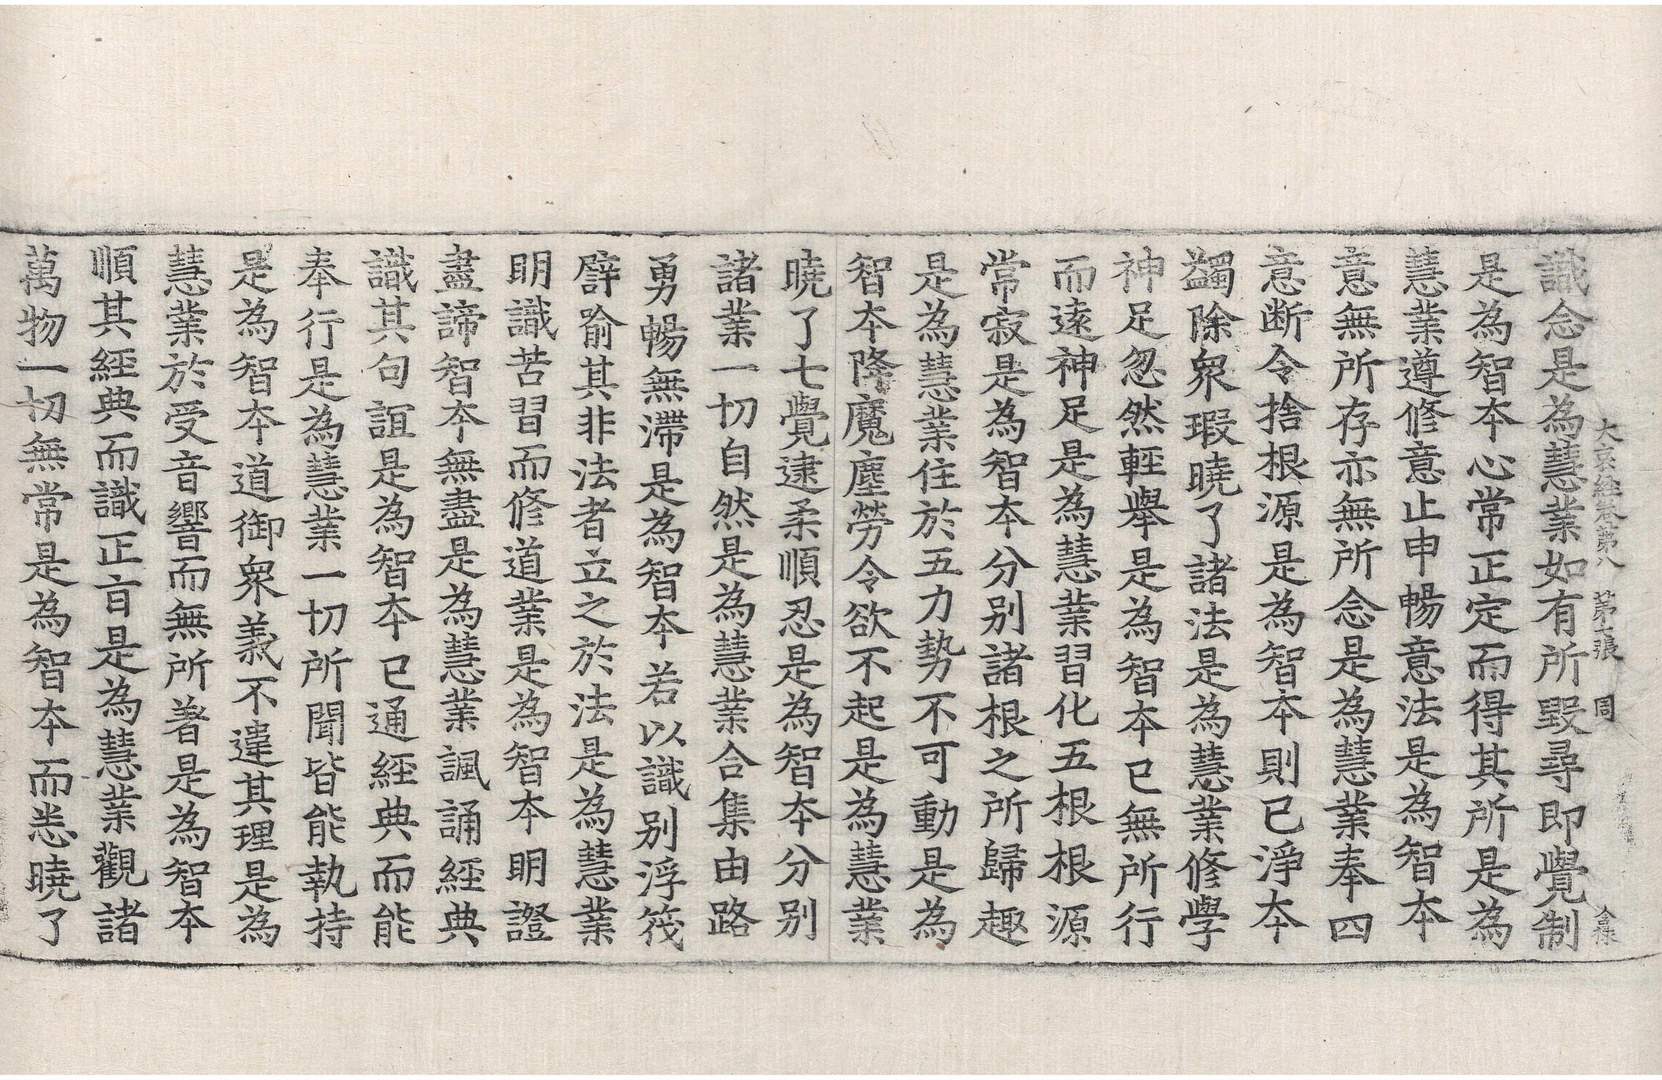 大哀經卷第八 第七張 同
識念是為慧業如有所毀尋即覺制
是為智本心常正定而得其所是為
慧業遵修意止申暢意法是為智本
意無所存亦無所念是為慧業奉四
意断令捨根源是為智本則已淨本
蠲除衆瑕曉了諸法是為慧業修學
神足忽然輕舉是為智本已無所行
而遠神足是為慧業習化五根根源
常寂是為智本分别諸根之所歸趣
是為慧業住於五力勢不可動是為
智本降魔塵勞令欲不起是為慧業
曉了七覺逮柔順忍是為智本分别
諸業一切自然是為慧業合集由路
勇暢無滯是為智本若以識别浮筏
譬喻其非法者立之於法是為慧業
明識苦習而修道業是為智本明證
盡諦智本無盡是為慧業諷誦經典
識其句誼是為智本已通經典而能
奉行是為慧業一切所聞皆能執持
是為智本道御衆義不違其理是為
慧業於受音響而無所著是為智本
順其經典而識正盲是為慧業觀諸
萬物一切無常是為智本而悉曉了